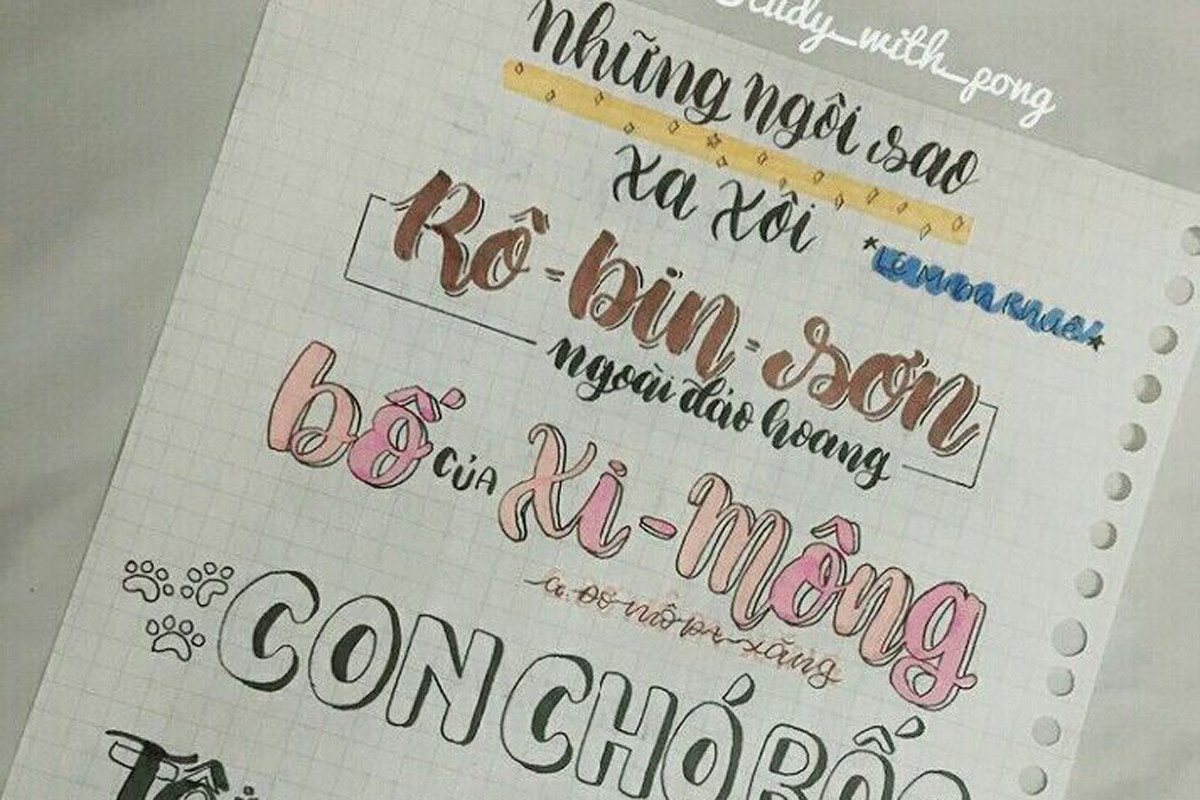 study_with_pong
Những ngôi sao
xa xôi
Rô=bin=sơn
ngoài đảo hoang
bố CỦA Xi-mông
CON CHÓ BẤ
Tôi